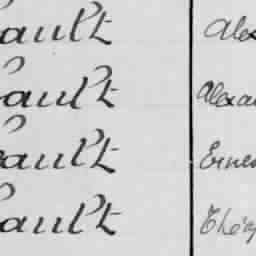 ault Alex
ault Alexa
ault Ernes
ault Théop